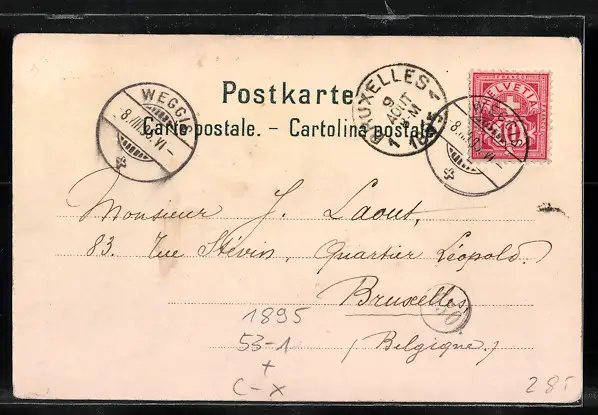 Postkarte.
Carte postale. - Cartolina postale
WEGGIS
BRUXELLES
9
AOUT
1895
WEGGIS
FRANCO
HELVETIA
10
Monsieur J. Laout,
83. Rue Stévin, Quartier Léopold.
Bruxelles
(Belgique.)
1895
53-1
+
C-X
285